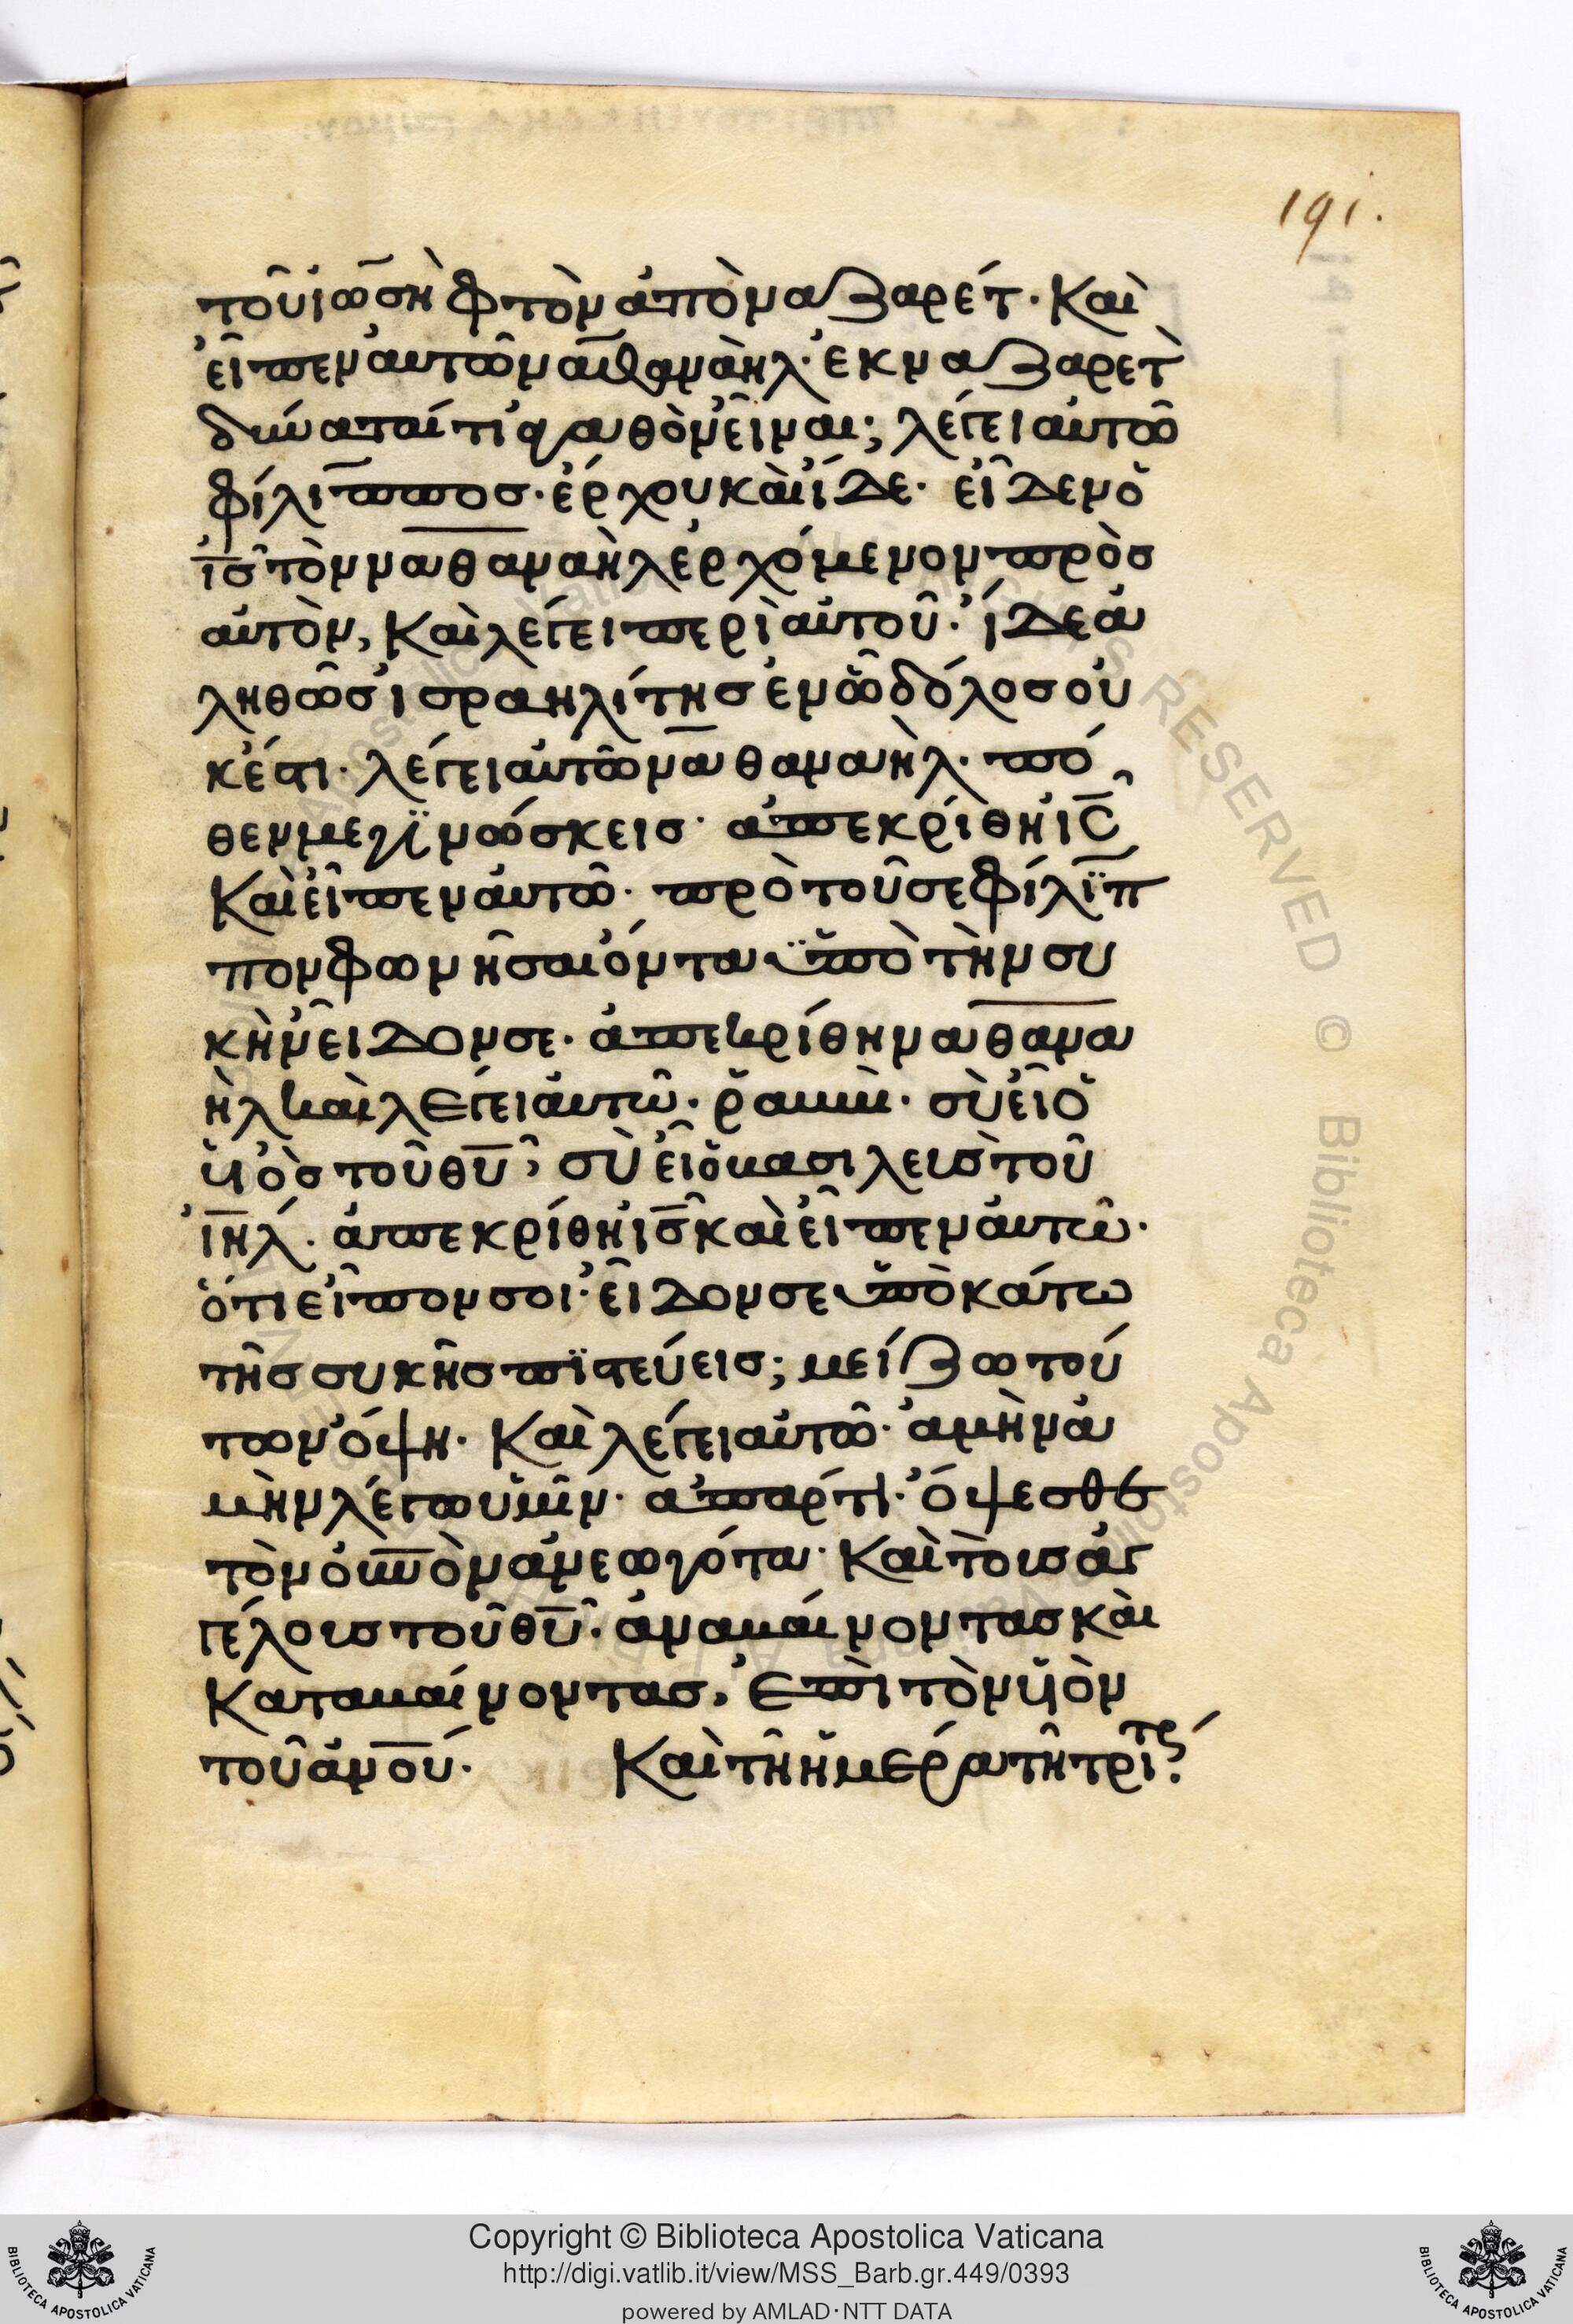 191.
τοῦ ἰωσὴφ τὸν ἀπὸ ναζαρέτ· Καὶ
εἶπεν αὐτῶ ναθαναὴλ· ἐκ ναζαρὲτ
δύναταί τι ἀγαθὸν εἶναι; λέγει αὐτῶ
φίλιππος· ἔρχου καὶ ἴδε· εἶδεν ὁ
ι̅ς̅ τὸν ναθαναὴλ ἐρχόμενον πρὸς
αὐτὸν, Καὶ λέγει περὶ αὐτοῦ· ἴδε ἀ
ληθῶς ἰσραηλίτης ἐν ὧ δόλος οὐ
κ ἔστι· λέγει αὐτῶ ναθαναήλ· πό
θεν με γϊνώσκεις· ἀπεκρίθη ι̅ς̅
Καὶ εἶπεν αὐτῶ· πρὸ τοῦ σε φίλϊπ
πον φωνῆσαι ὄντα ϋπὸ τὴν συ
κὴν εἶδον σε· ἀπεκρίθη ναθανα
ὴλ καὶ λέγει αὐτῶ· ῥαββὶ· σὺ εἶ ὁ
υἱὸς τοῦ θ̅υ̅, σὺ εἶ ὁ βασιλεὺς τοῦ
ι̅η̅λ̅· ἀπεκρίθη ι̅ς̅ καὶ εἶπεν αὐτῶ·
ὅτι εἶπον σοι· εἶδον σε ὑποκάτω
τῆς συκῆς πϊστεύεις; μείζω τού
των ὄψη· Καὶ λέγει αὐτῶ· ἀμὴν ἀ
μὴν λέγω ὑμῖν· ἀπάρτι· ὄψεσθε
τὸν ο̅υ̅ν̅ὸν ἀνεωγότα· Καὶ τοὺς ἀγ
γέλους τοῦ θ̅υ̅· ἀναβαίνοντας καὶ
Καταβαίνοντας, ἐπὶ τὸν υἱὸν
τοῦ ἀ̅ν̅ο̅υ̅· Καὶ τῆ ἡμέρα τῆ τρί
Copyright © Biblioteca Apostolica Vaticana
http://digi.vatlib.it/view/MSS_Barb.gr.449/0393
powered by AMLAD·NTT DATA